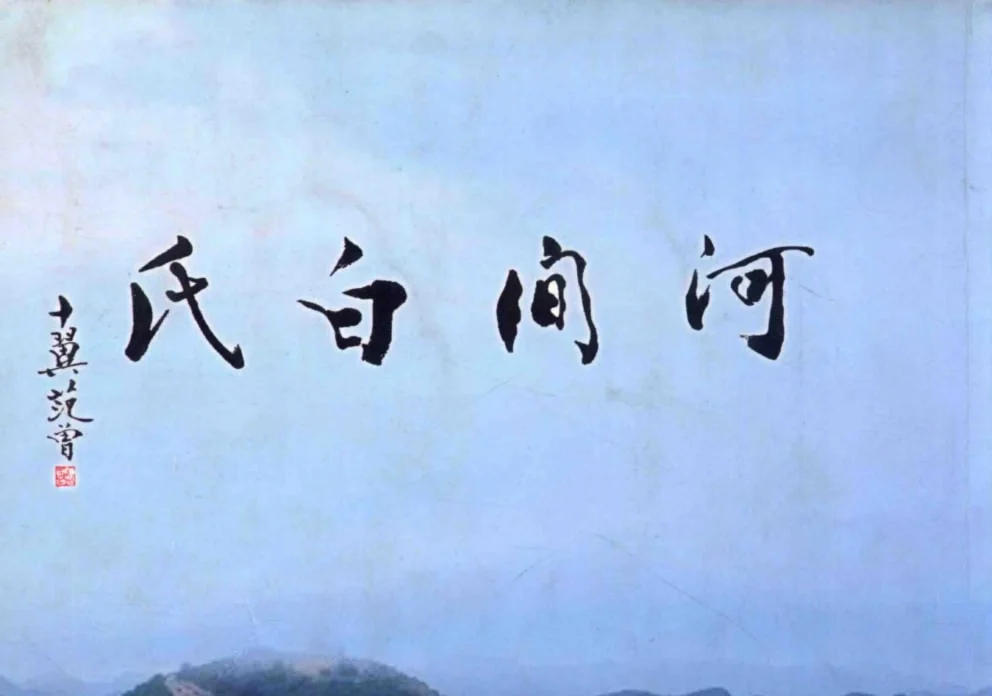 河间白氏
十翼范曾